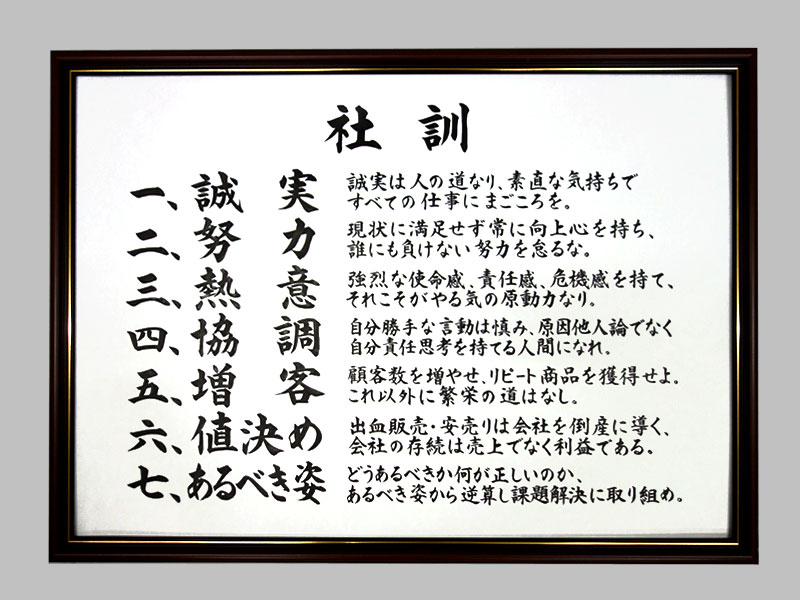 社訓
一、誠実
誠実は人の道なり、素直な気持ちで
すべての仕事にまごころを。
二、努力
現状に満足せず常に向上心を持ち、
誰にも負けない努力を怠るな。
三、熱意
強烈な使命感、責任感、危機感を持て、
それこそがやる気の原動力なり。
四、協調
自分勝手な言動は慎み、原因他人論でなく
自分責任思考を持てる人間になれ。
五、増客
顧客数を増やせ、リピート商品を獲得せよ。
これ以外に繁栄の道はなし。
六、値決め
出血販売・安売りは会社を倒産に導く、
会社の存続は売上でなく利益である。
七、あるべき姿
どうあるべきか何が正しいのか、
あるべき姿から逆算し課題解決に取り組め。